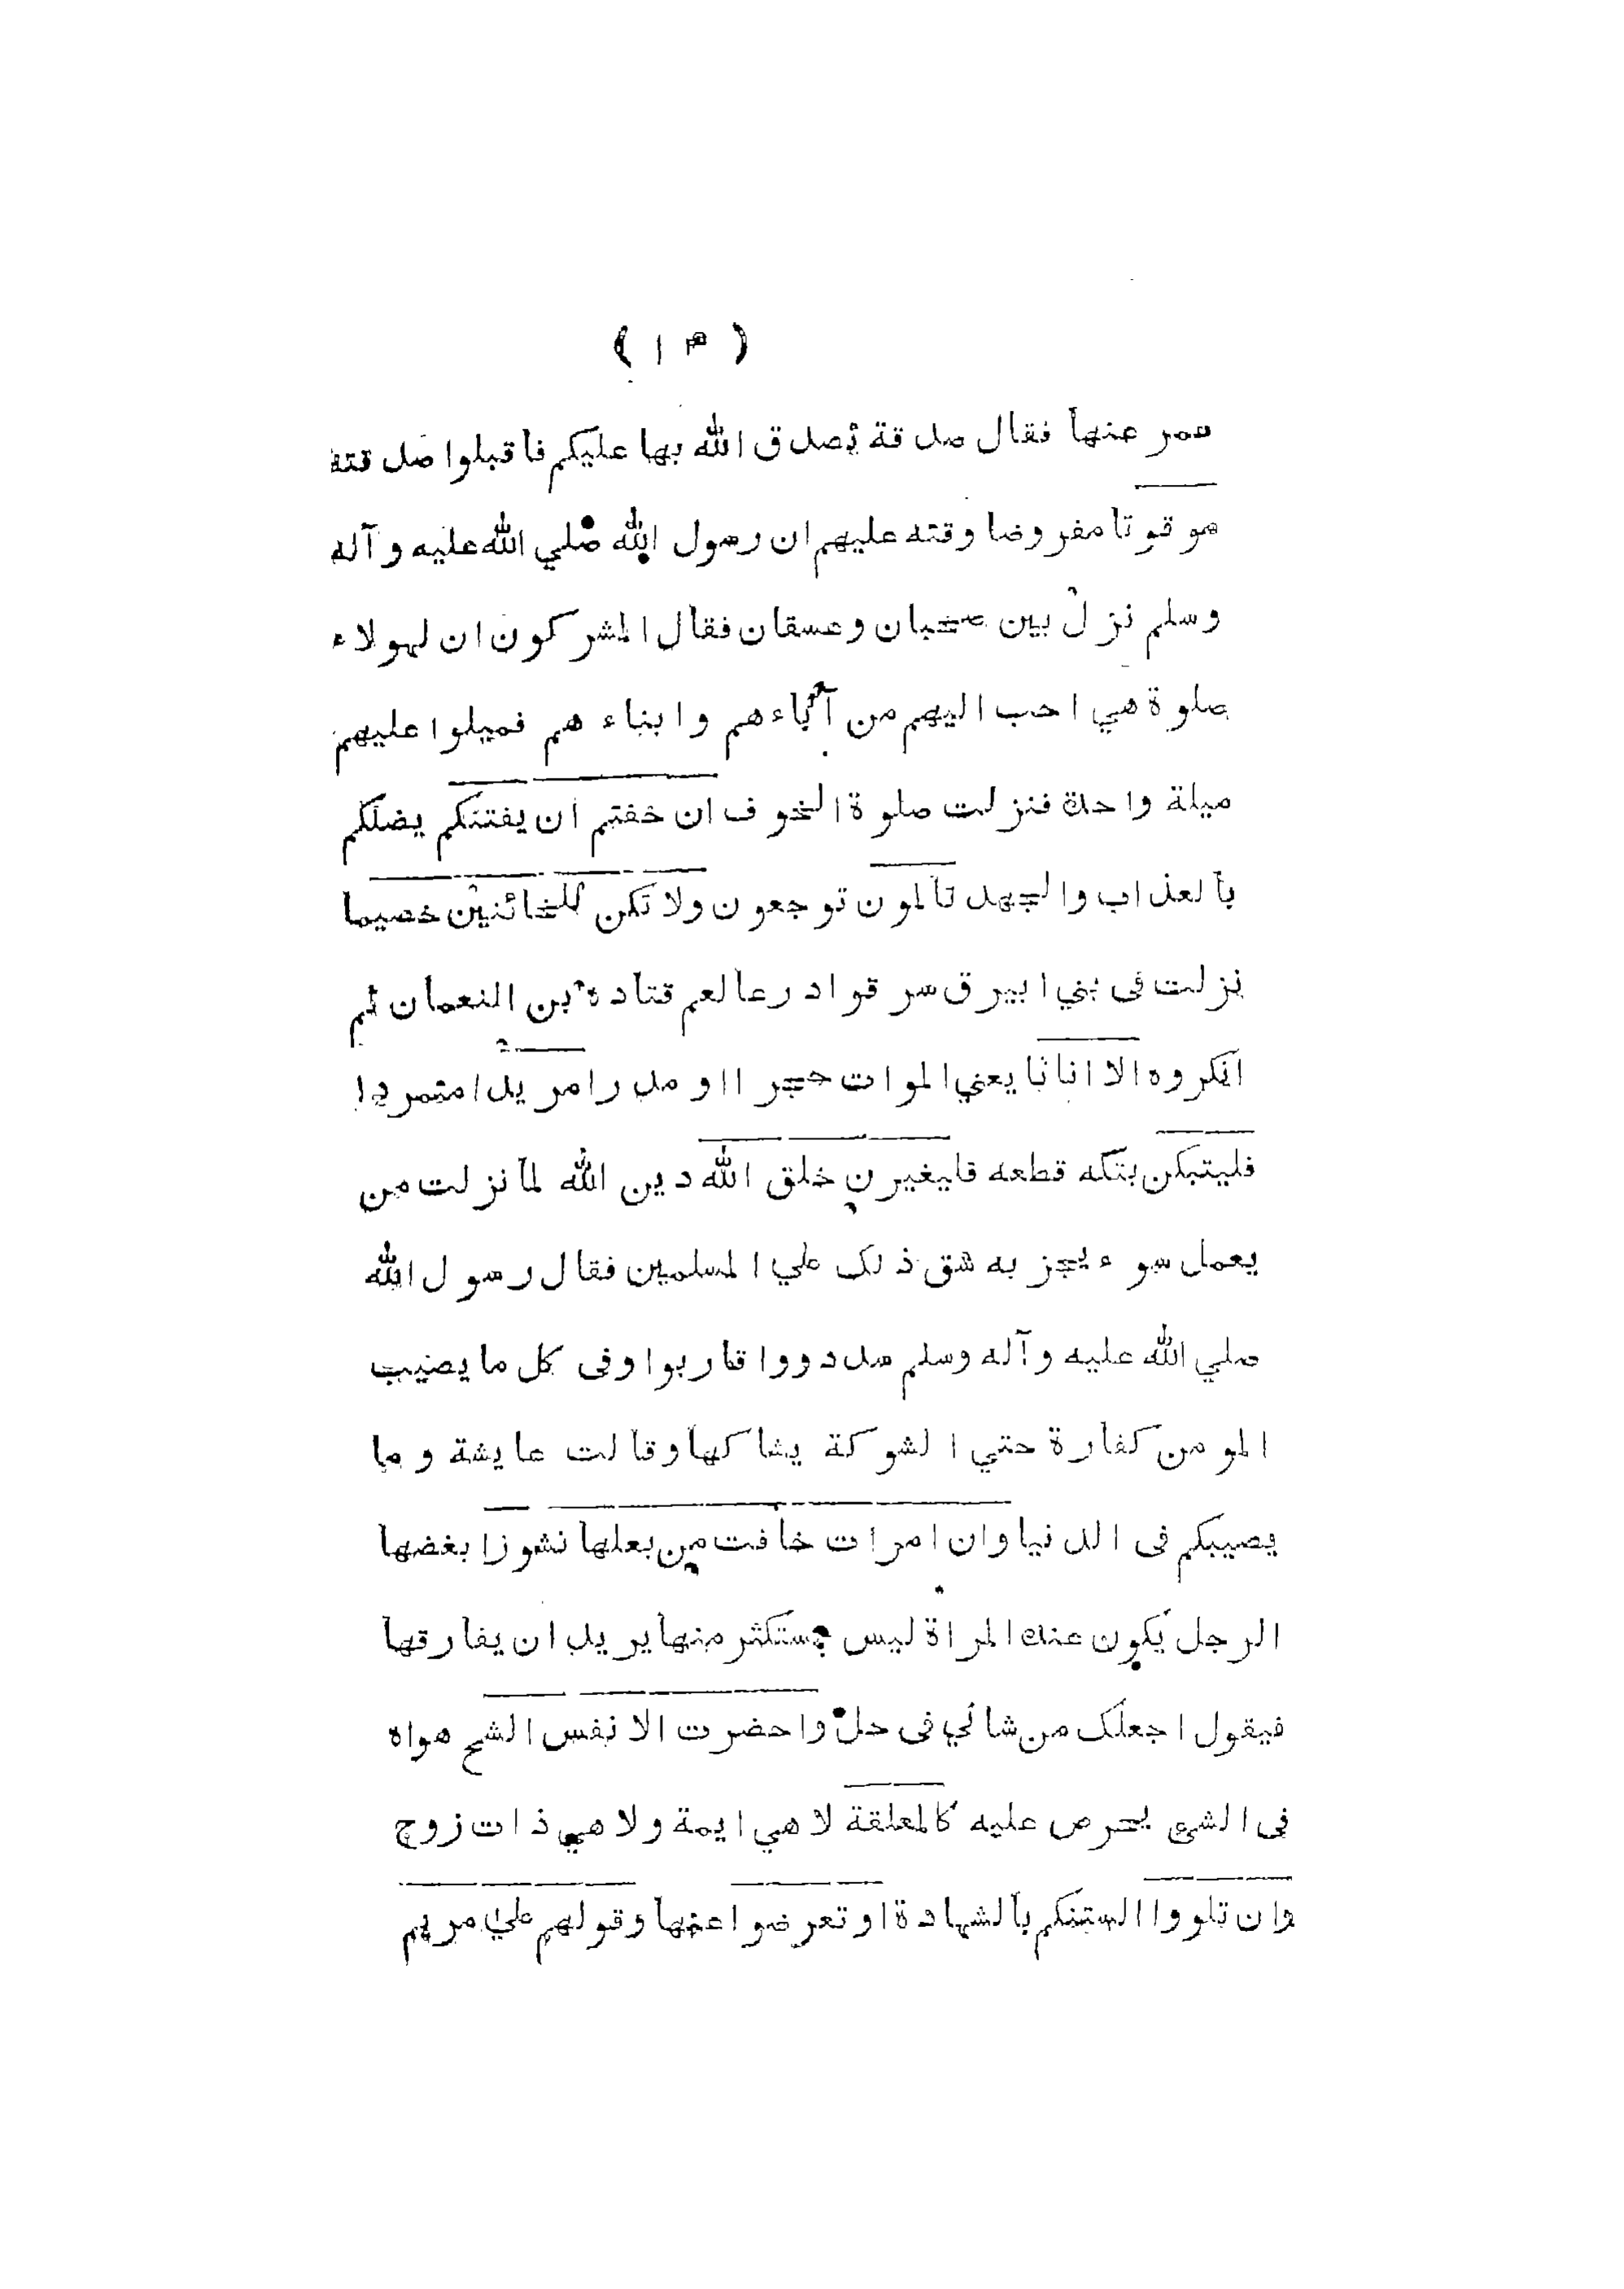 ( ١٣ )
عمر عنها فقال صدقة تصدق الله بها عليكم فاقبلوا صدقته
موقوتا مفروضا وقته عليهم ان رسول الله صلي الله عليه وآله
وسلم نزل بين ضجنان وعسفان فقال المشركون ان لهولاء
صلوة هي احب اليهم من آباءهم وابناءهم فميلوا عليهم
ميلة واحدة فنزلت صلوة الخوف ان خفتم ان يفتنكم يضلكم
بالعذاب والجهد تألمون توجعون ولا تكن للخائنين خصيما
نزلت فى بني ابيرق سرقوا درعا لعم قتاده بن النعمان ثم
انكروه الا اناثا يعني الموات حجرا او مدرا مريدا متمردا
فليتبكن بتكه قطعه فليغيرن خلق الله دين الله لما نزلت من
يعمل سوء يجز به شق ذلك علي المسلمين فقال رسول الله
صلي الله عليه وآله وسلم سددوا وقاربوا وفى كل ما يصيب
المومن كفارة حتي الشوكة يشاكها وقالت عايشة وما
يصيبكم فى الدنيا وان امرات خافت من بعلها نشوزا بغضها
الرجل يكون عنده المراة ليس بمستكثر منها يريد ان يفارقها
فيقول اجعلك من شاني فى حل واحضرت الانفس الشح هواه
فى الشئ يحرص عليه كالمعلقة لا هي ايمة ولا هي ذات زوج
وان تلووا السنتكم بالشهادة او تعرضوا عنها وقولهم علي مريم